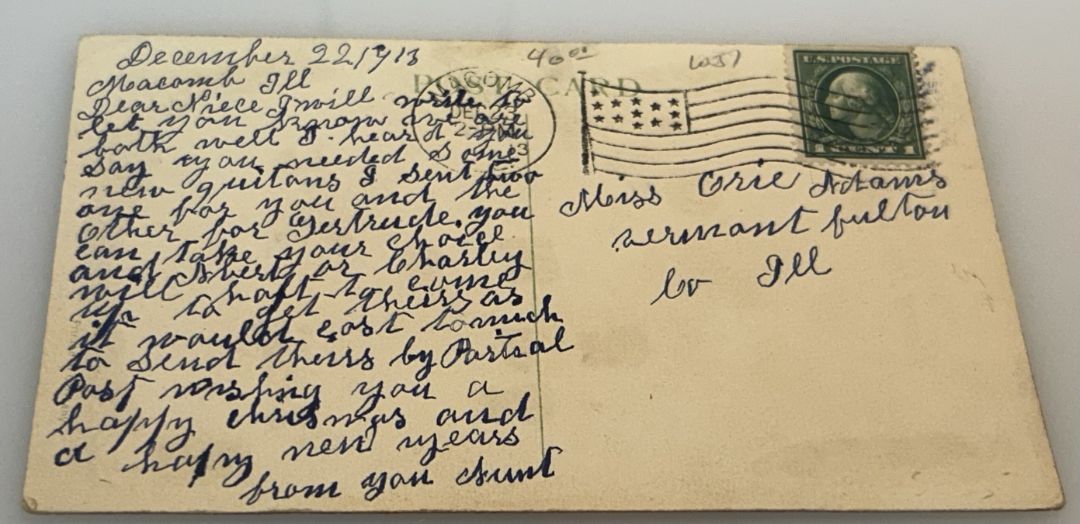 December 22 1913
Macomb Ill
Dear Niece I will write to
let you know we are
both well I heard you
say you needed some
new guitons I sent two
one for you and the
other for Gertrude, you
can take your choice
and Albert or Charley
will haft to come
up to get theirs as
it would cost to much
to send theirs by Partsal
Post wishing you a
happy chrismas and
a happy new years
from you Aunt
POST CARD
MACOMB
DEC 22
2-
13
40
U.S. POSTAGE
1 CENT 1
Miss Orie Adams
vermont fulton
co Ill